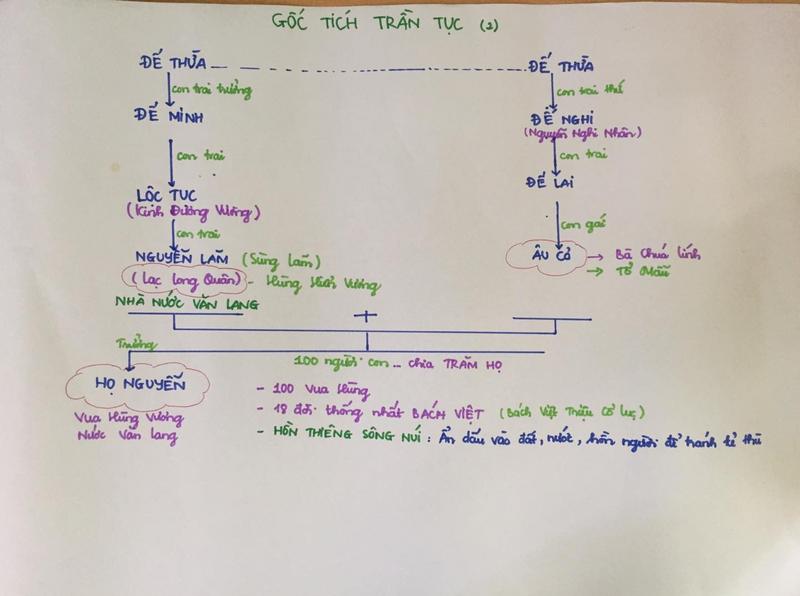 GỐC TÍCH TRẦN TỤC (2)
ĐẾ THỪA
ĐẾ THỪA
con trai trưởng
con trai thứ
ĐẾ MINH
ĐẾ NGHI
(Nguyễn Nghi Nhân)
con trai
con trai
ĐẾ LAI
LỘC TỤC
(Kinh Dương Vương)
con gái
con trai
NGUYỄN LÂM (Sùng Lãm)
(Lạc Long Quân) - Hùng Hiền Vương
ÂU CƠ
→ Bà Chúa lính
→ Tổ Mẫu
NHÀ NƯỚC VĂN LANG
+
Trưởng
100 người con ... chia TRĂM HỌ
HỌ NGUYỄN
Vua Hùng Vương
Nước Văn lang
- 100 Vua Hùng
- 18 đời thống nhất BÁCH VIỆT (Bách Việt Triệu Cổ lục)
- HỒN THIÊNG SÔNG NÚI : Ẩn dấu vào đất, nước, hồn người để tránh kẻ thù